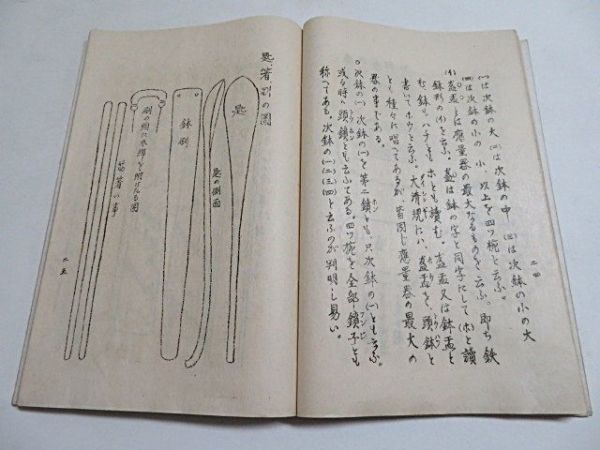 二四
(一)は次鉢の大 (二)は次鉢の中 (三)は次鉢の小の大
(四)は次鉢の小の小、以上を四ツ椀と云ふ。即ち鉄
盋盂とは應量器の最大なるものを云ふ。
鉢形の(イ)を云ふ。盋は鉢の字と同字にして(ホ)と讀
む、鉢はハチともホとも讀む。盋盂又は鉢盂と
書いてホウと云ふ。大清規には、盋盂を、頭鉢と
と種々に唱へてあるが、皆同じ應量器の最大の
器の事である。
○次鉢の(一) 次鉢の(一)を第二鎖とも、只次鉢の(一)とも云ふ。
或る時は頭鎖とも云ふてある。四ツ椀を全部鎖子とも
称へてある。次鉢の(一)(二)(三)(四)と云ふのが判明し易い。
匙、箸、刷の圖
匙
匙の側面
鉢刷
刷の頭に布端を附けたる圖
箸の事
二五